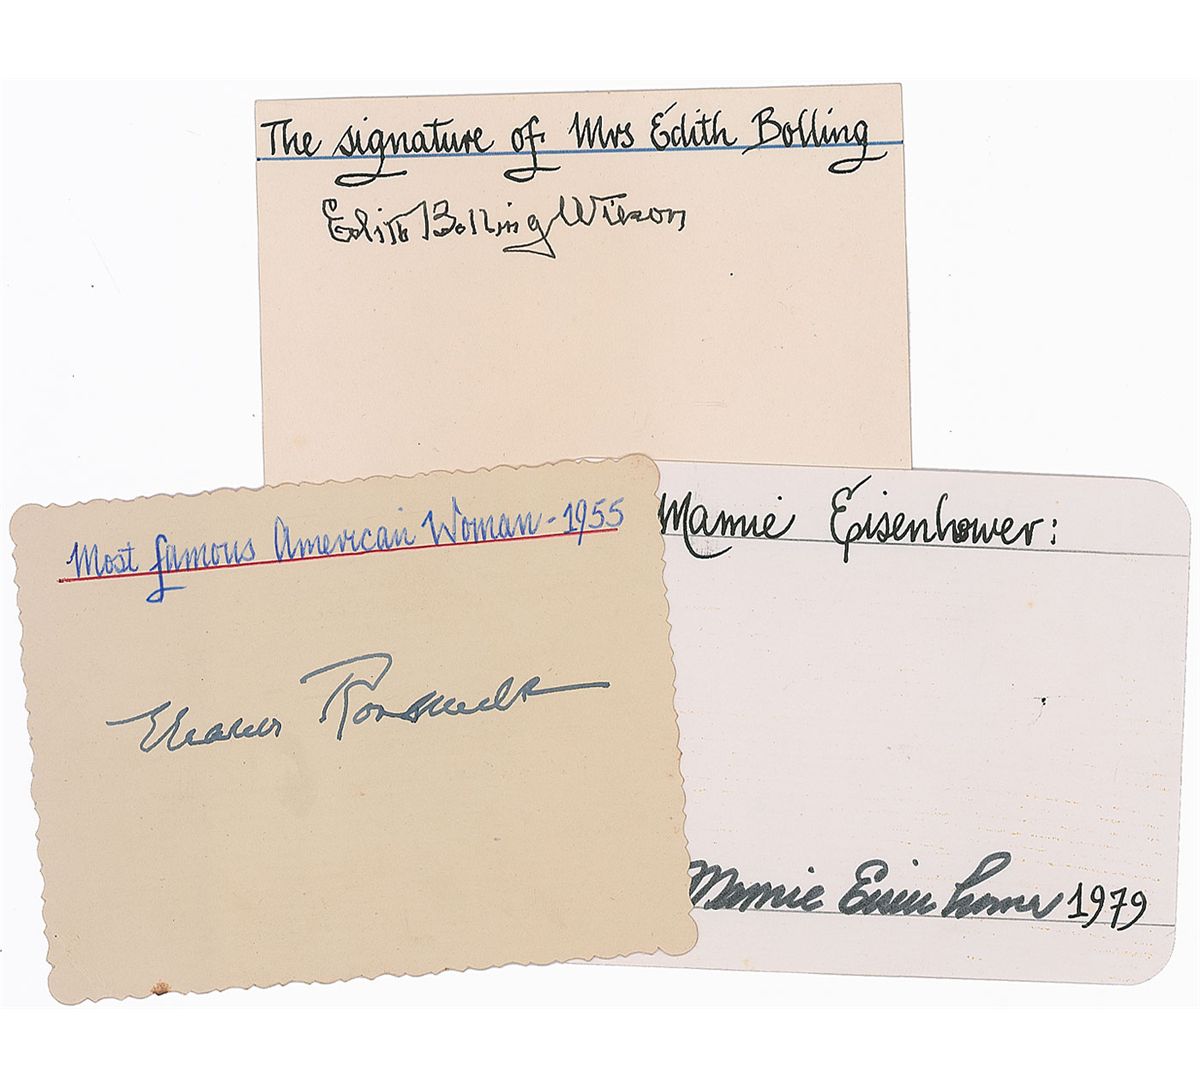 The signature of Mrs Edith Bolling
Edith Bolling Wilson
Most famous American Woman - 1955
Eleanor Roosevelt
Mamie Eisenhower:
Mamie Eisenhower 1979